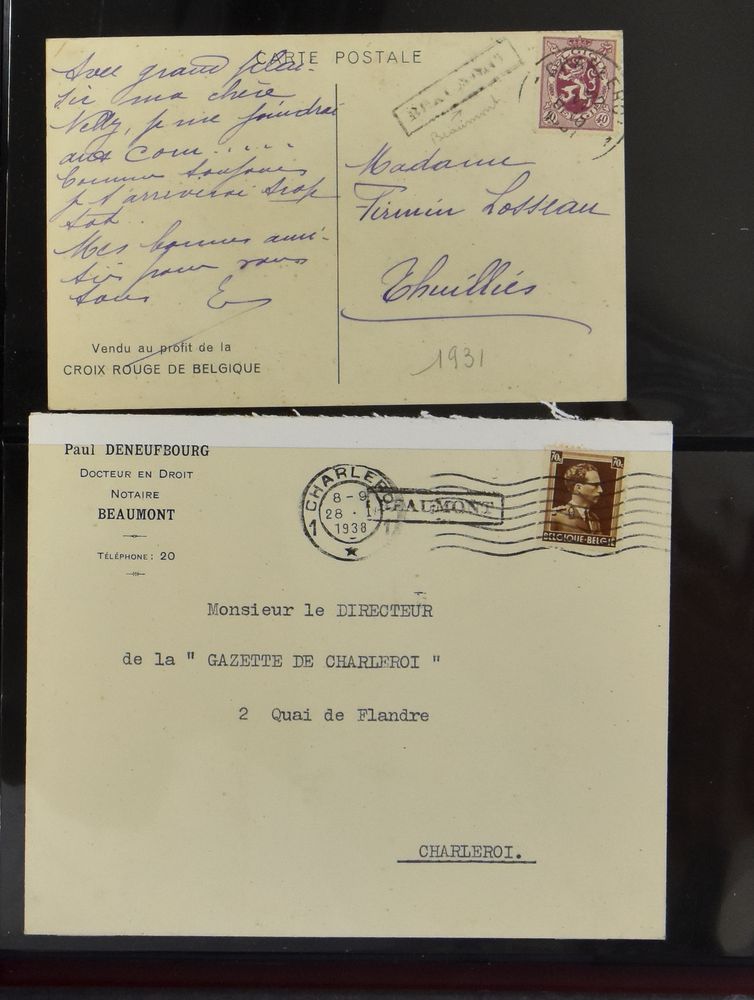 CARTE POSTALE
Avec grand plai-
sir ma chère
Nelly, je me joindrai
aux Com.....
Comme toujours
j t'arriverai trop
tot..
Mes bonnes ami-
tiés pour vous
tous E
Vendu au profit de la
CROIX ROUGE DE BELGIQUE
BEAUMONT
Beaumont
BELGIQUE
BELGIE
40
Madame
Firmin Losseau
Thuilliés
1931
Paul DENEUFBOURG
DOCTEUR EN DROIT
NOTAIRE
BEAUMONT
TÉLÉPHONE : 20
CHARLEROI
8-9
28
1938
1 1
BEAUMONT
70c 70c
BELGIQUE-BELGIE
Monsieur le DIRECTEUR
de la " GAZETTE DE CHARLEROI "
2 Quai de Flandre
CHARLEROI.